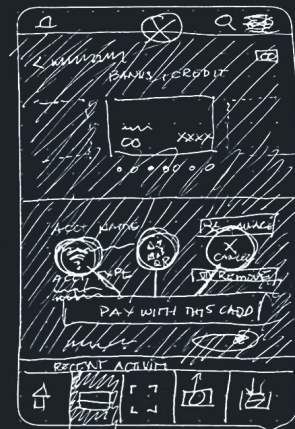 BANKS, CREDIT
XXXX
ACCT NAME
QR
X
CANCEL
ACCT TYPE
REMOVE
PAY WITH THIS CARD
RECENT ACTIVITY